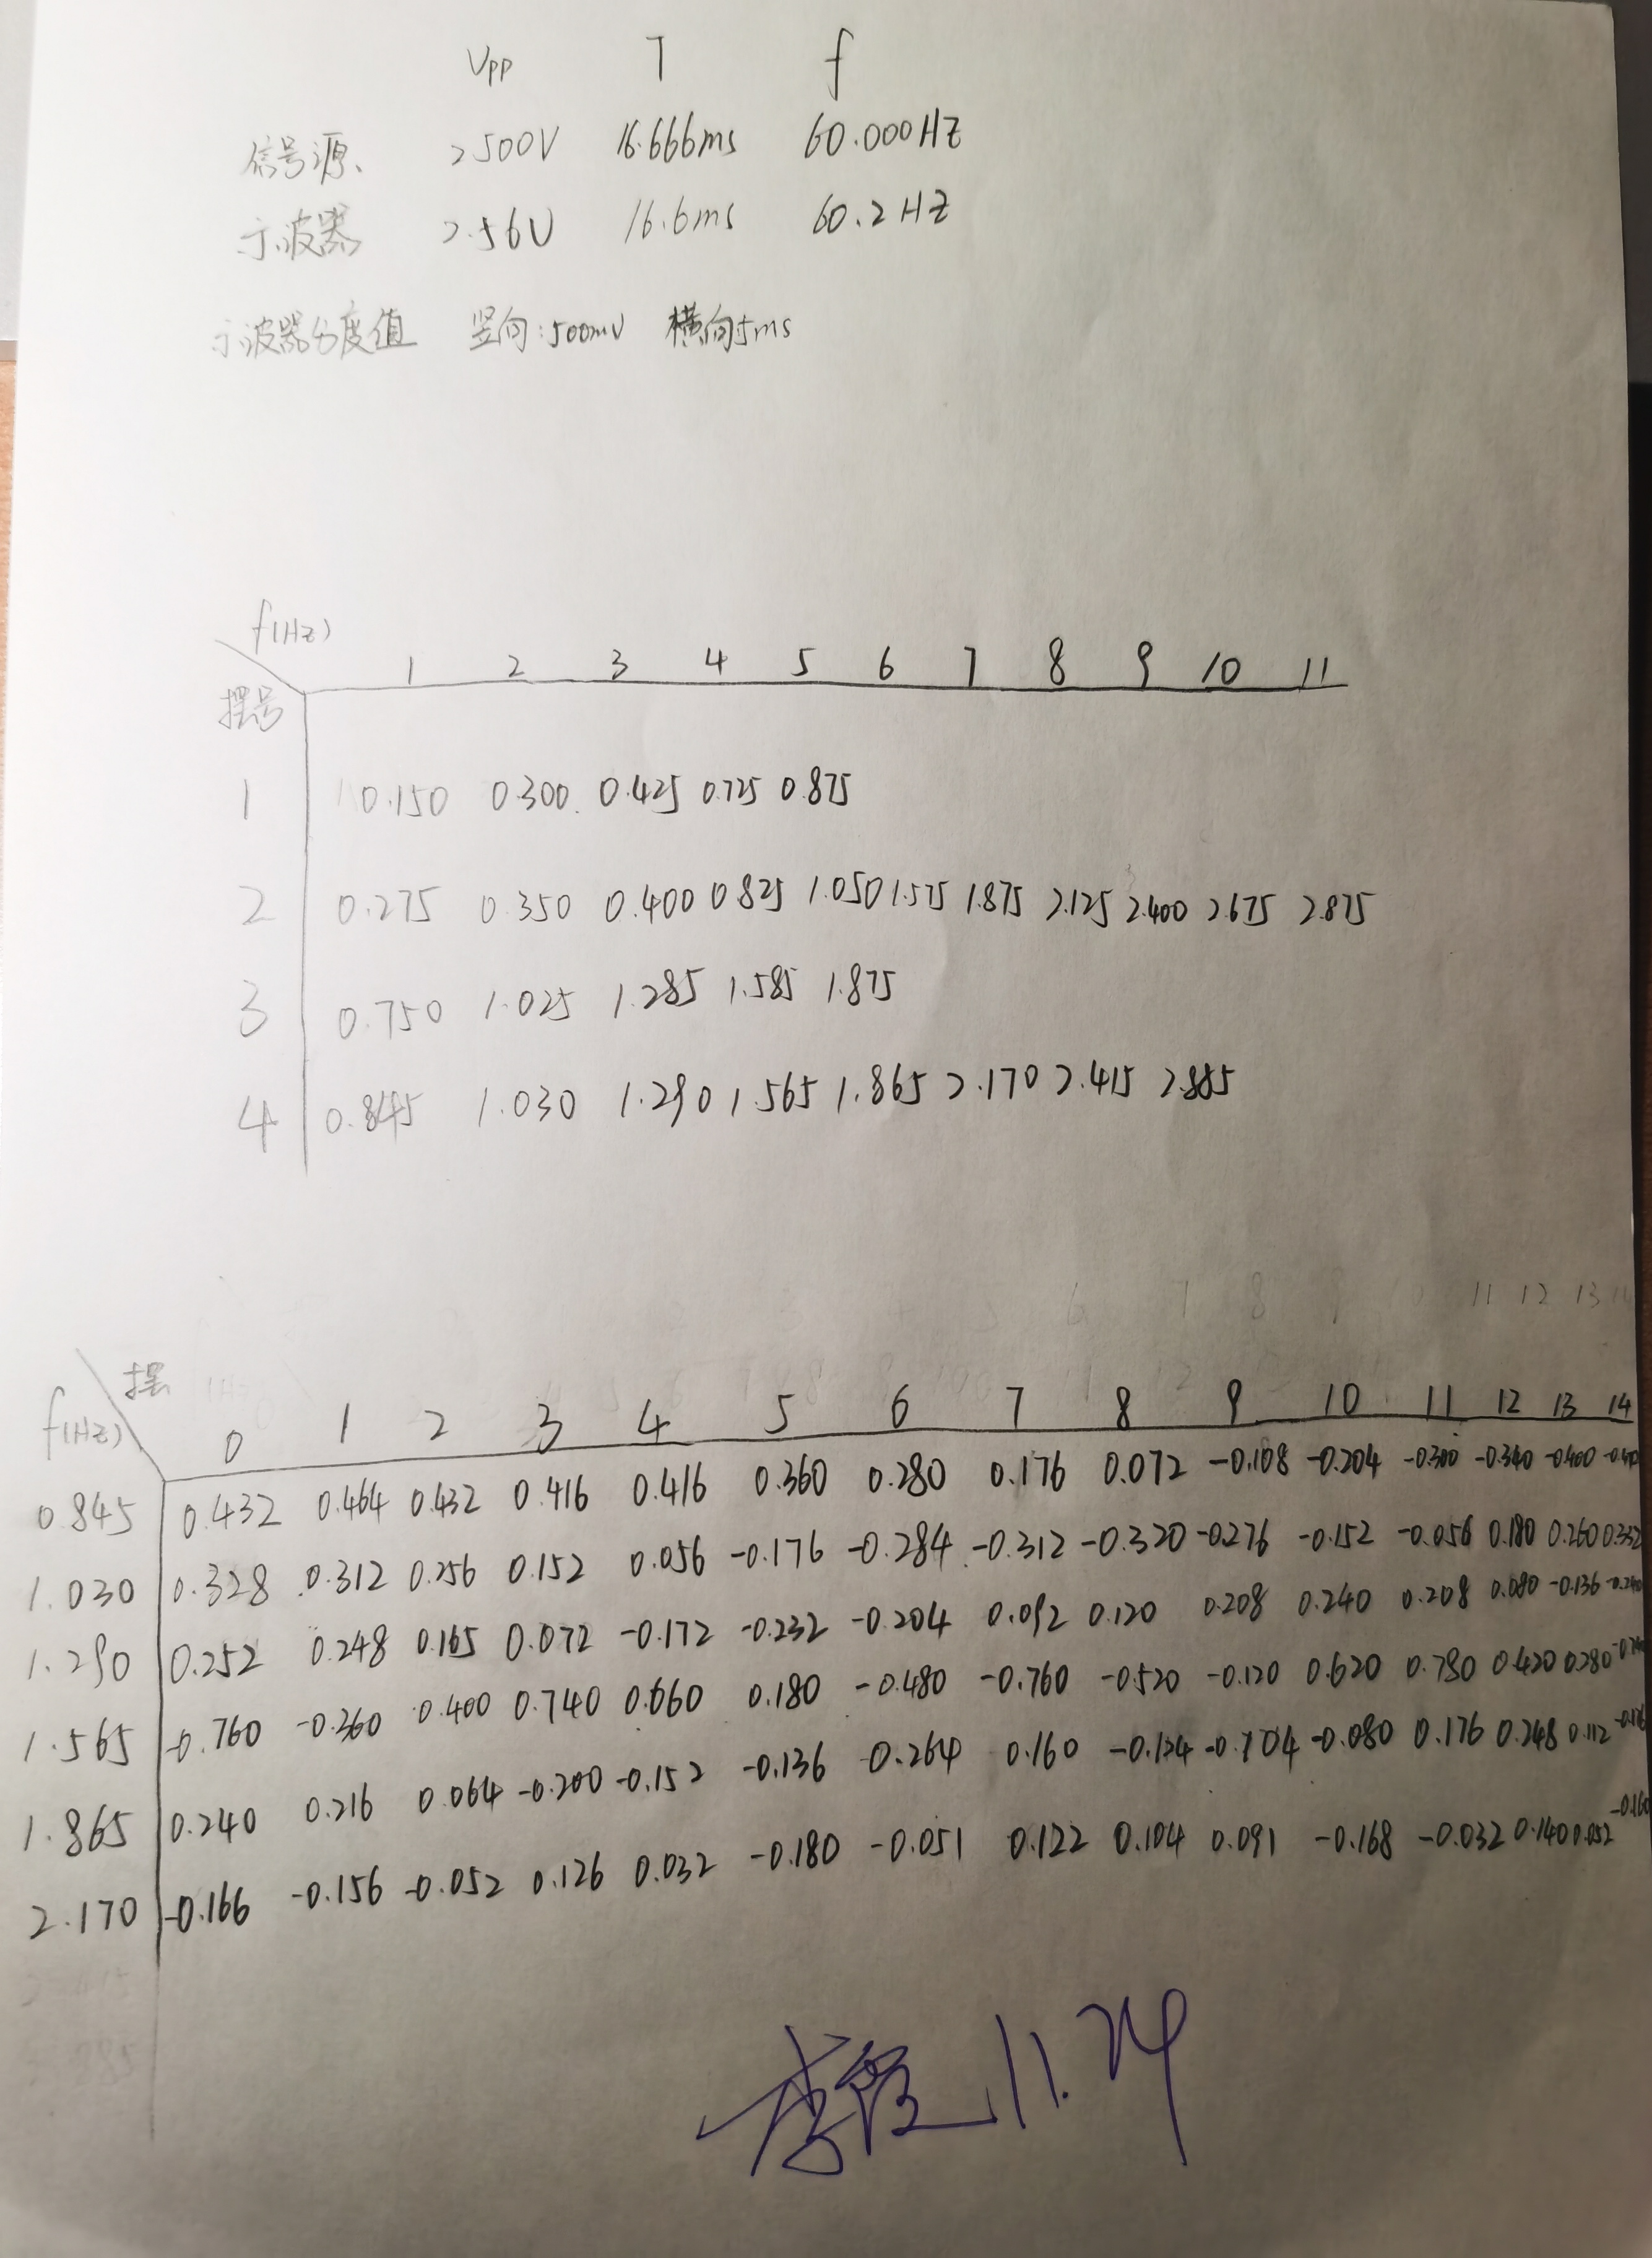 Vpp T f
信号源、 2500V 16.666ms 60.000HZ
示波器 2.56V 16.6ms 60.2HZ
示波器分度值 竖向:500mV 横向5ms
f(Hz) 1 2 3 4 5 6 7 8 9 10 11
摆号
1 0.150 0.300 0.425 0.725 0.875
2 0.275 0.350 0.400 0.825 1.050 1.575 1.875 2.125 2.400 2.675 2.875
3 0.750 1.025 1.285 1.585 1.875
4 0.845 1.030 1.290 1.565 1.865 2.170 2.415 2.885
摆
f(Hz) 0 1 2 3 4 5 6 7 8 9 10 11 12 13 14
0.845 0.432 0.464 0.432 0.416 0.416 0.360 0.280 0.176 0.072 -0.108 -0.204 -0.300 -0.340 -0.400
1.030 0.328 0.312 0.256 0.152 0.056 -0.176 -0.284 -0.312 -0.320 -0.276 -0.152 -0.056 0.180 0.260 0.332
1.290 0.252 0.248 0.165 0.072 -0.172 -0.232 -0.204 0.092 0.120 0.208 0.240 0.208 0.080 -0.136
1.565 -0.760 -0.360 0.400 0.740 0.660 0.180 -0.480 -0.760 -0.520 -0.120 0.620 0.780 0.420 0.280
1.865 0.240 0.216 0.064 -0.200 -0.152 -0.136 0.264 0.160 -0.124 -0.080 0.176 0.248 0.112
2.170 -0.166 -0.156 -0.052 0.126 0.032 -0.180 -0.051 0.122 0.104 0.091 -0.168 -0.032 0.140 0.052
李霞 11.24